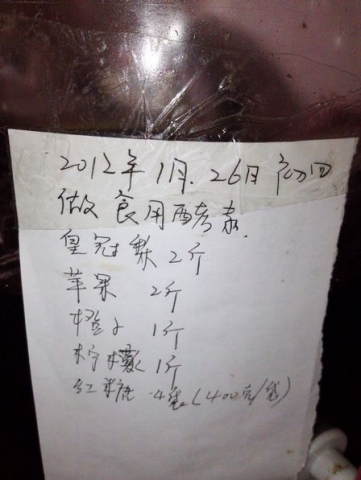 2012年1月.26日初四
做食用酵素.
皇冠梨 2斤
苹果 2斤
橙子 1斤
柠檬 1斤
红糖 4袋(400克/袋)